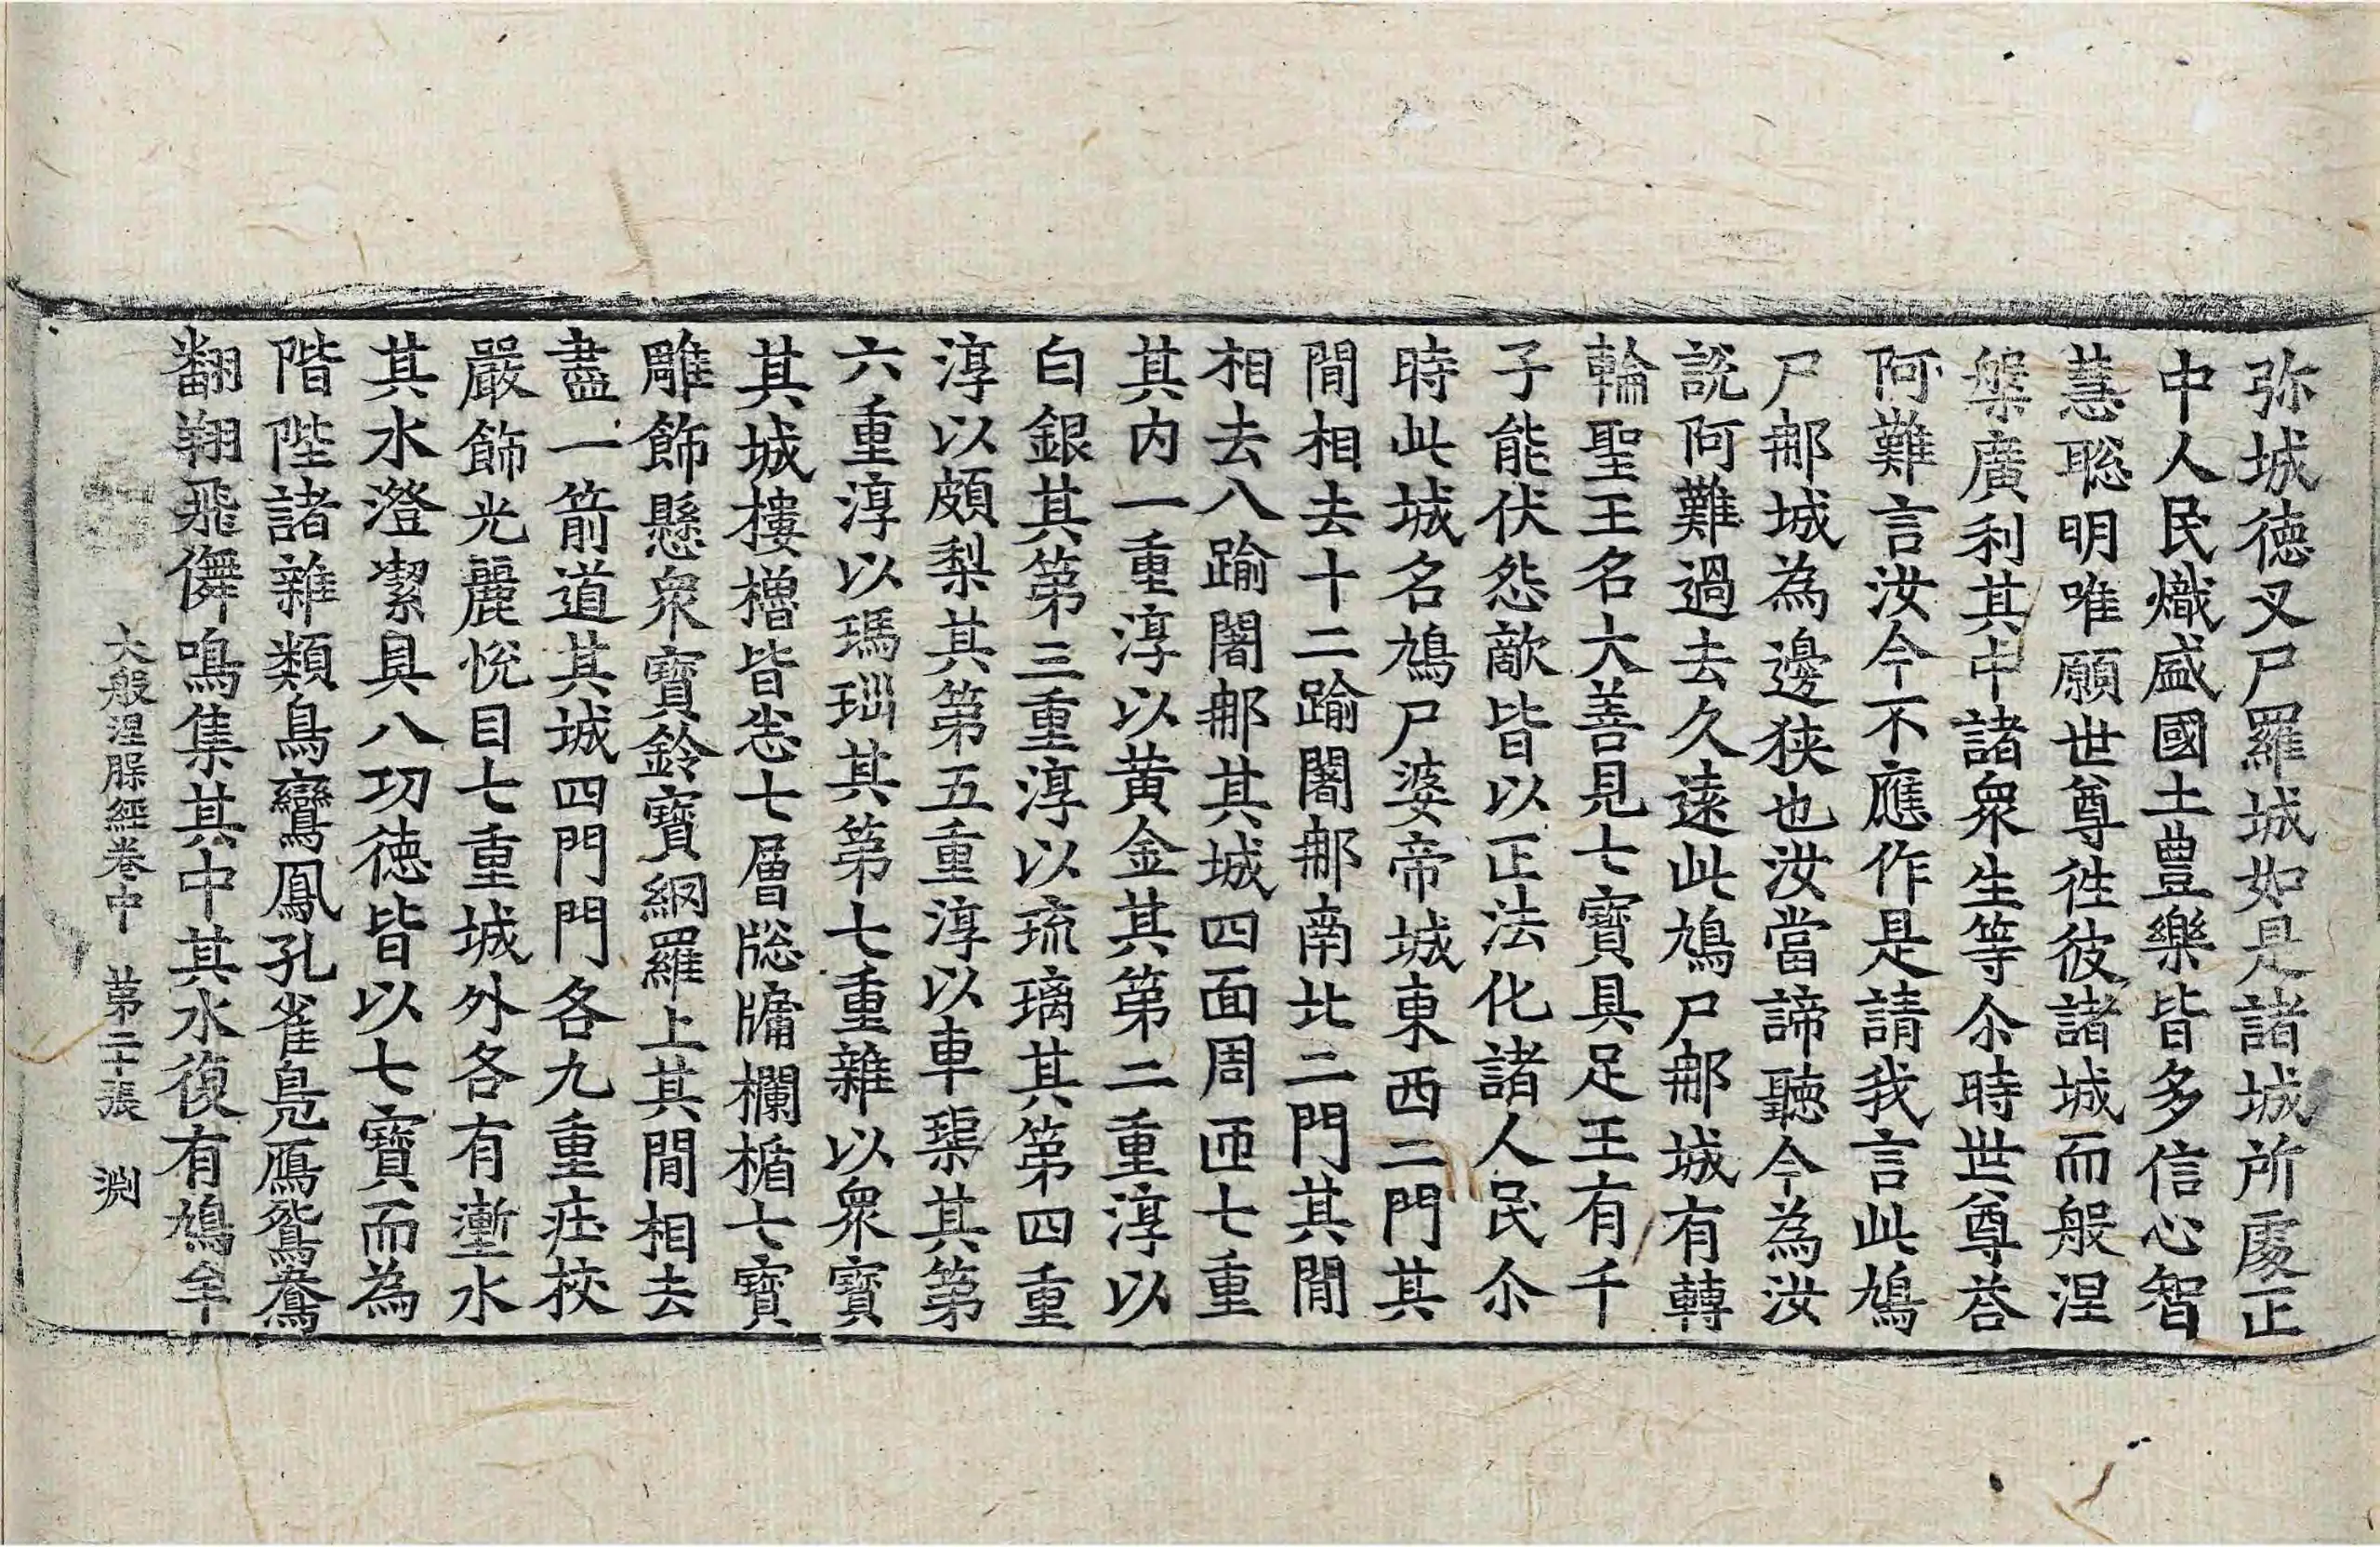 弥城德叉尸羅城如是諸城所處正
中人民熾盛國土豊樂皆多信心智
慧聡明唯願世尊徃彼諸城而般涅
槃廣利其中諸衆生等尒時世尊荅
阿難言汝今不應作是請我言此鳩
尸郍城為邊狹也汝當諦聽今為汝
說阿難過去久遠此鳩尸郍城有轉
輪聖王名大善見七寶具足王有千
子能伏怨敵皆以正法化諸人民尒
時此城名鳩尸婆帝城東西二門其
間相去十二踰闍郍南北二門其間
相去八踰闍郍其城四面周匝七重
其内一重淳以黄金其第二重淳以
白銀其第三重淳以琉璃其第四重
淳以頗梨其第五重淳以車𤦲其第
六重淳以瑪瑙其第七重雜以衆寶
其城樓櫓皆悉七層牎牖欄楯七寶
雕飾懸衆寶鈴寶網羅上其間相去
盡一箭道其城四門門各九重庄校
嚴飾光麗悅目七重城外各有壍水
其水澄潔具八功德皆以七寶而為
階陛諸雜類鳥鸞鳳孔雀鳧鴈鴛鴦
翻翔飛儛鳴集其中其水復有鳩牟
大般涅脲經卷中 第二十張 渕